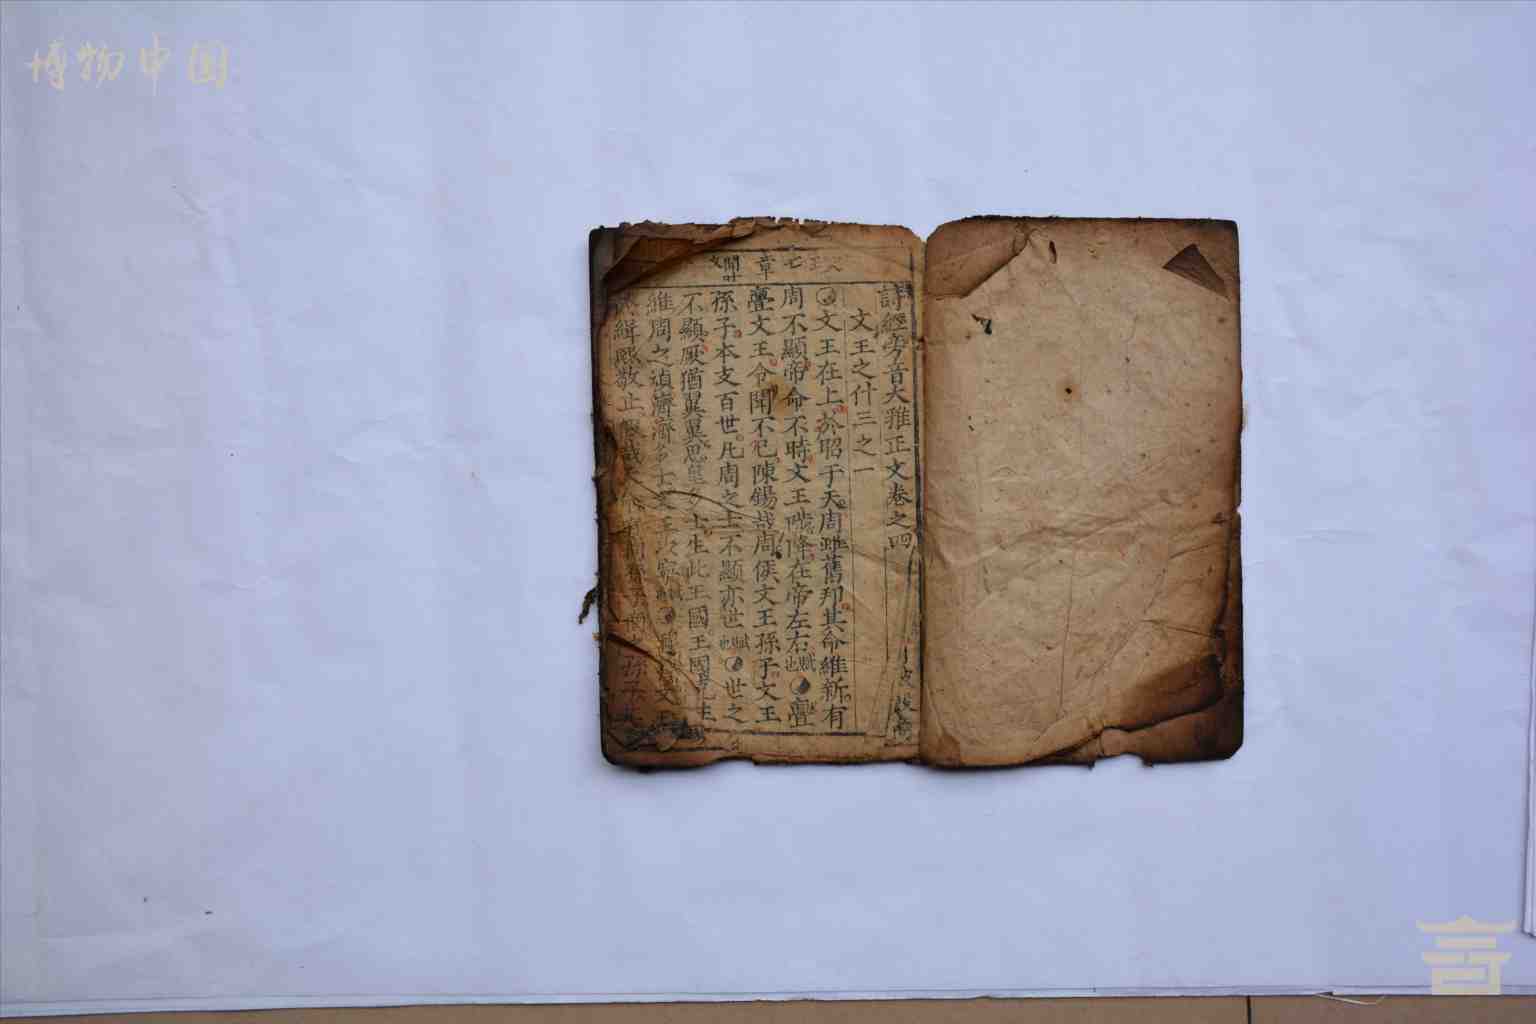 博物中国
文王七章
詩經旁音大雅正文卷之四
文王之什三之一
文王在上於昭于天周雖舊邦其命維新有
周不顯帝命不時文王陟降在帝左右賦也亹
亹文王令聞不已陳錫哉周侯文王孫子文王
孫子本支百世凡周之士不顯亦世賦也世之
不顯厥猶翼翼思皇多士生此王國王國克生
維周之禎濟濟多士文王以寧賦也文王
緝熙敬止孫子